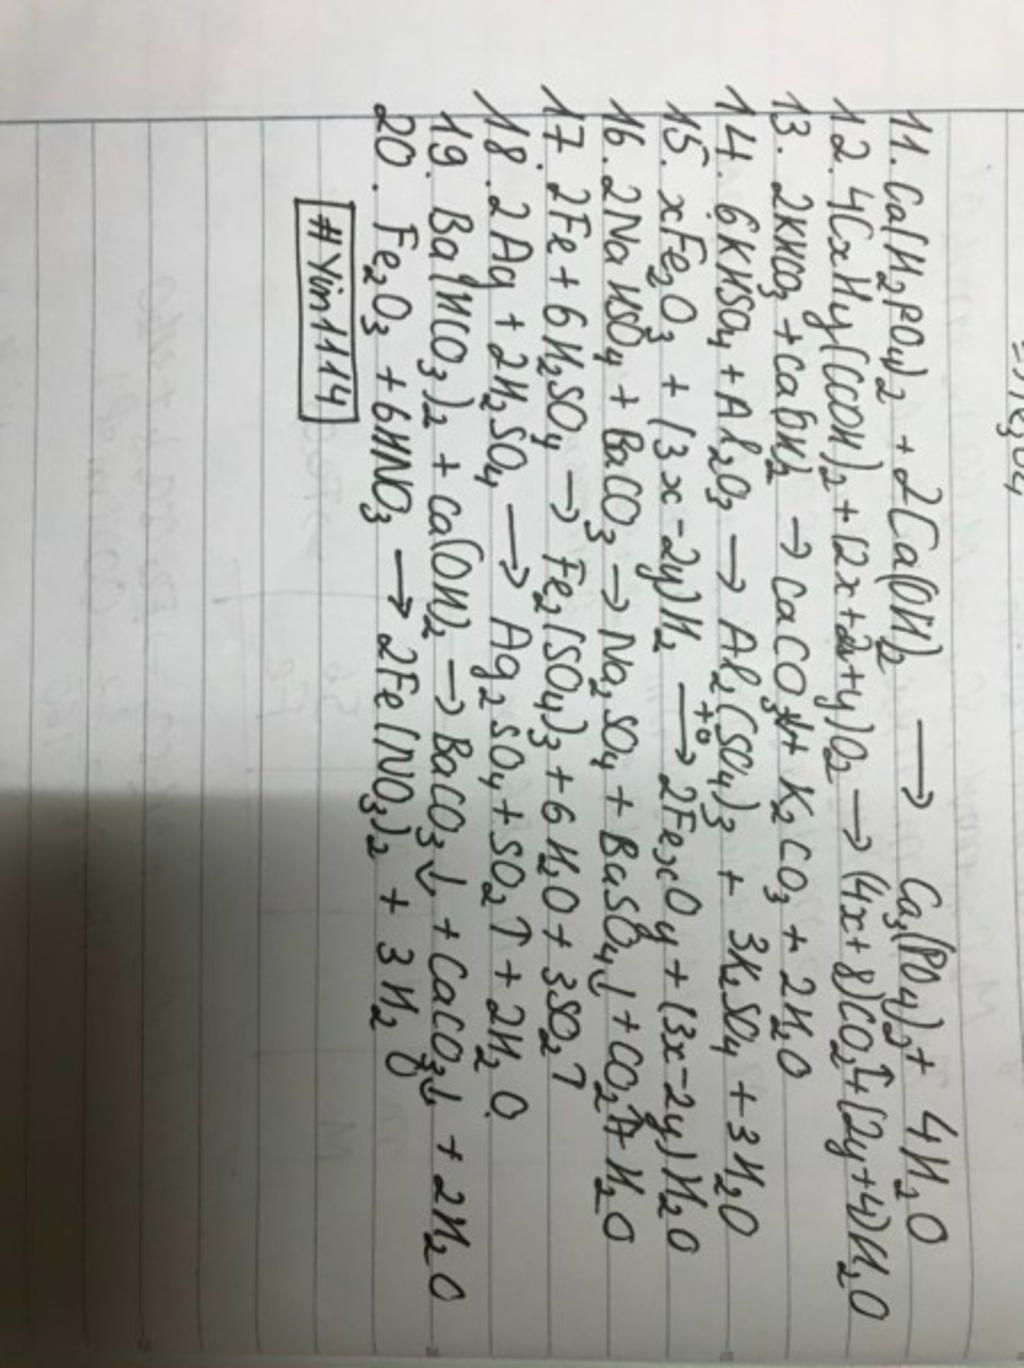 => Fe3O4
11. Ca(H2PO4)2 + 2Ca(OH)2 → Ca3(PO4)2 + 4H2O
12. 4CxHy(COOH)2 + (2x+2+y)O2 → (4x+8)CO2↑ + (2y+4)H2O
13. 2KHCO3 + Ca(OH)2 → CaCO3↓ + K2CO3 + 2H2O
14. 6KHSO4 + Al2O3 → Al2(SO4)3 + 3K2SO4 + 3H2O
15. xFe2O3 + (3x-2y)H2 →t° 2FexOy + (3x-2y)H2O
16. 2NaHSO4 + BaCO3 → Na2SO4 + BaSO4↓ + CO2↑ + H2O
17. 2Fe + 6H2SO4 → Fe2(SO4)3 + 6H2O + 3SO2↑
18. 2Ag + 2H2SO4 → Ag2SO4 + SO2↑ + 2H2O
19. Ba(HCO3)2 + Ca(OH)2 → BaCO3↓ + CaCO3↓ + 2H2O
20. Fe2O3 + 6HNO3 → 2Fe(NO3)2 + 3H2O
#Yin1114